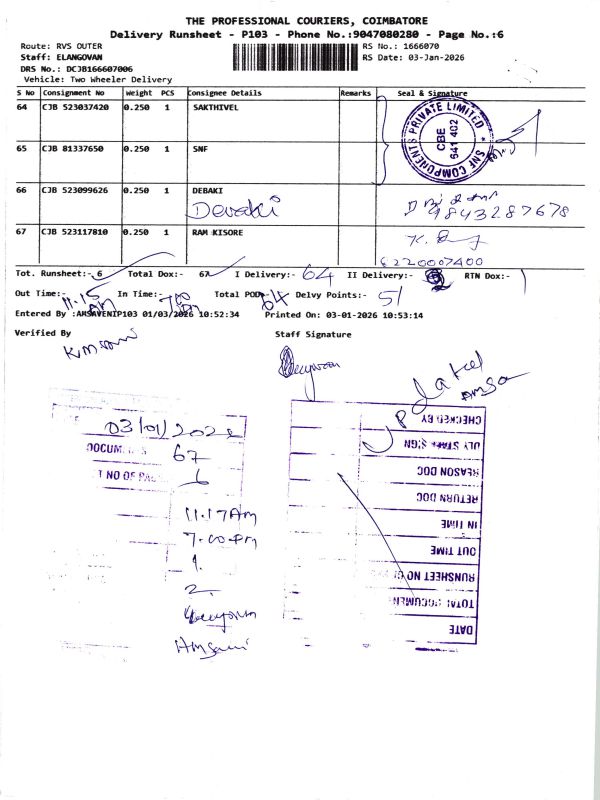 THE PROFESSIONAL COURIERS, COIMBATORE
Delivery Runsheet - P103 - Phone No.:9047080280 - Page No.:6
Route: RVS OUTER
RS No.: 1666070
Staff: ELANGOVAN
RS Date: 03-Jan-2026
DRS No.: DCJB166607006
Vehicle: Two Wheeler Delivery
S No Consignment No Weight PCS Consignee Details Remarks Seal & Signature
64 CJB 523037420 0.250 1 SAKTHIVEL
SNF COMPONENTS PRIVATE LIMITED
CBE
641 402
65 CJB 81337650 0.250 1 SNF
66 CJB 523099626 0.250 1 DEBAKI
Devaki
9843287678
67 CJB 523117810 0.250 1 RAM KISORE
6220007400
Tot. Runsheet:- 6 Total Dox:- 67 I Delivery:- 64 II Delivery:- RTN Dox:-
Out Time:- 11.15 AM In Time:- 7.00 Pm Total POD:- 64 Delvy Points:- 51
Entered By :AMSAVENIP103 01/03/2026 10:52:34 Printed On: 03-01-2026 10:53:14
Verified By Staff Signature
03/01/2026
DOCUM
67
T NO OF
6
11.17Am
7.00 Pm
1.
2.
CHECKED BY
DLY STAFF SIGN
REASON DOC
RETURN DOC
IN TIME
OUT TIME
RUNSHEET NO
TOTAL DOCUMEN
DATE